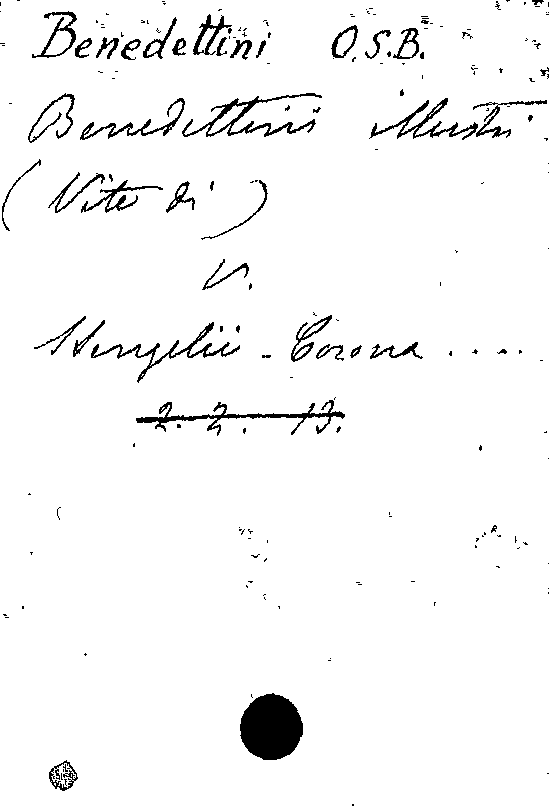 Benedettini O.S.B.
Benedettini illustri
(Vite di)
V.
Stengelii - Corona ....
2. 2. 13.